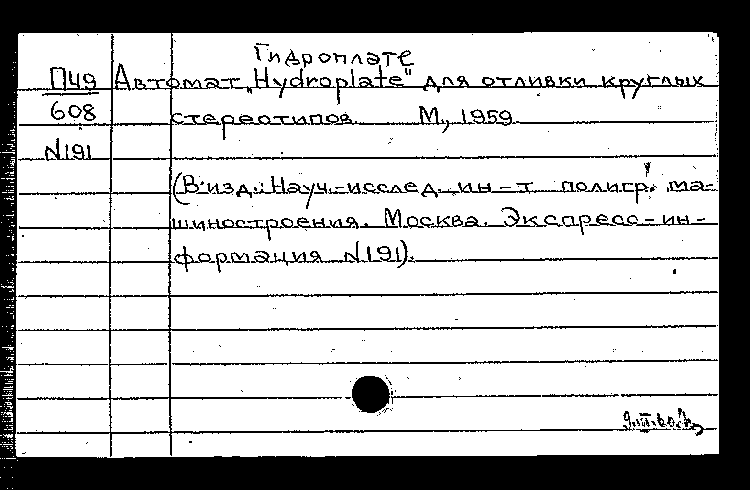 Гидроплате
П49 Автомат „Hydroplate" для отливки круглых
608 стереотипов. М., 1959
N191
(В изд.: Науч.-исслед. ин-т полигр. ма-
шиностроения. Москва. Экспресс-ин-
формация N191).